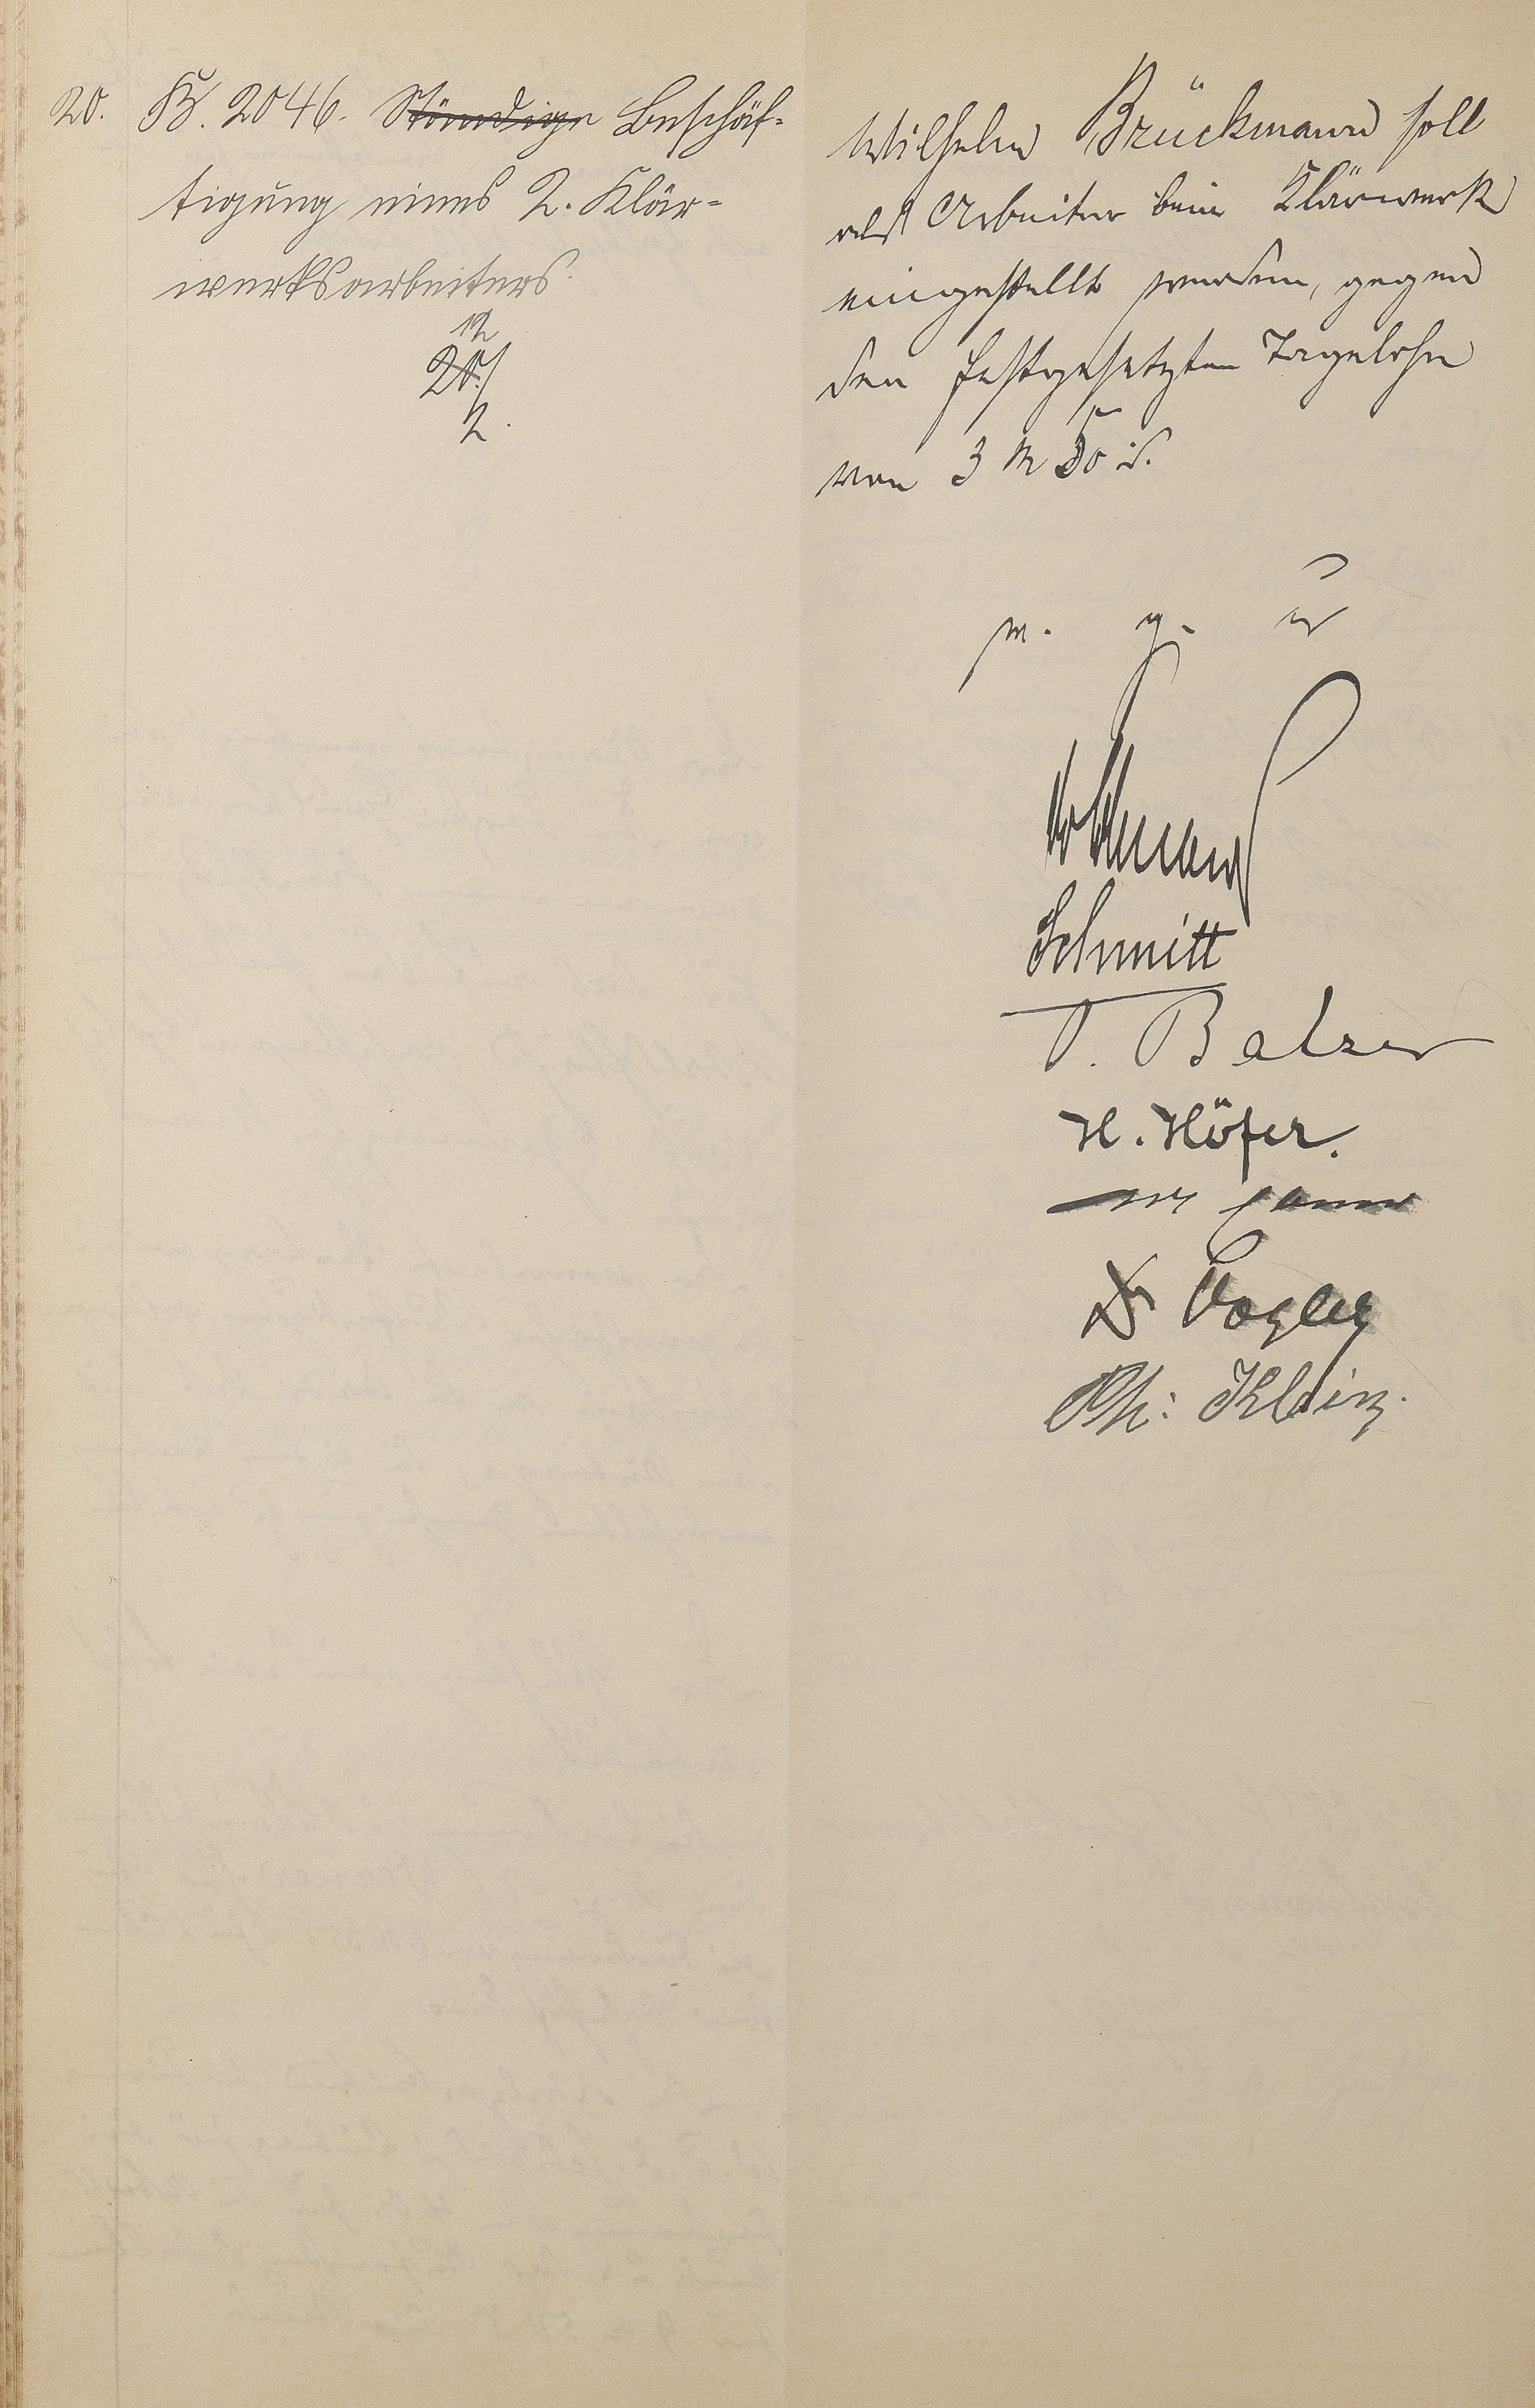 20. B. 2046. Ständige Beschäf-
tigung eines 2. Klär-
werksarbeiters.
12
20./
2.
Wilhelm Brückmann soll
als Arbeiter beim Klärwerk
eingestellt werden, gegen
den festgesetzten Tagelohn
von 3 M 50 d.
v. g. u
Schmitt
Balzer
H. Höfer.
Dr Vogler
Ph: Klein.